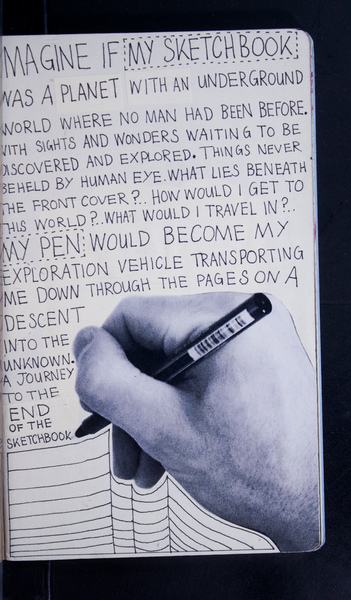 IMAGINE IF MY SKETCHBOOK
WAS A PLANET WITH AN UNDERGROUND
WORLD WHERE NO MAN HAD BEEN BEFORE.
WITH SIGHTS AND WONDERS WAITING TO BE
DISCOVERED AND EXPLORED. THINGS NEVER
BEHELD BY HUMAN EYE. WHAT LIES BENEATH
THE FRONT COVER?.. HOW WOULD I GET TO
THIS WORLD?.. WHAT WOULD I TRAVEL IN?..
MY PEN WOULD BECOME MY
EXPLORATION VEHICLE TRANSPORTING
ME DOWN THROUGH THE PAGES ON A
DESCENT
INTO THE
UNKNOWN.
A JOURNEY
TO THE
END
OF THE
SKETCHBOOK